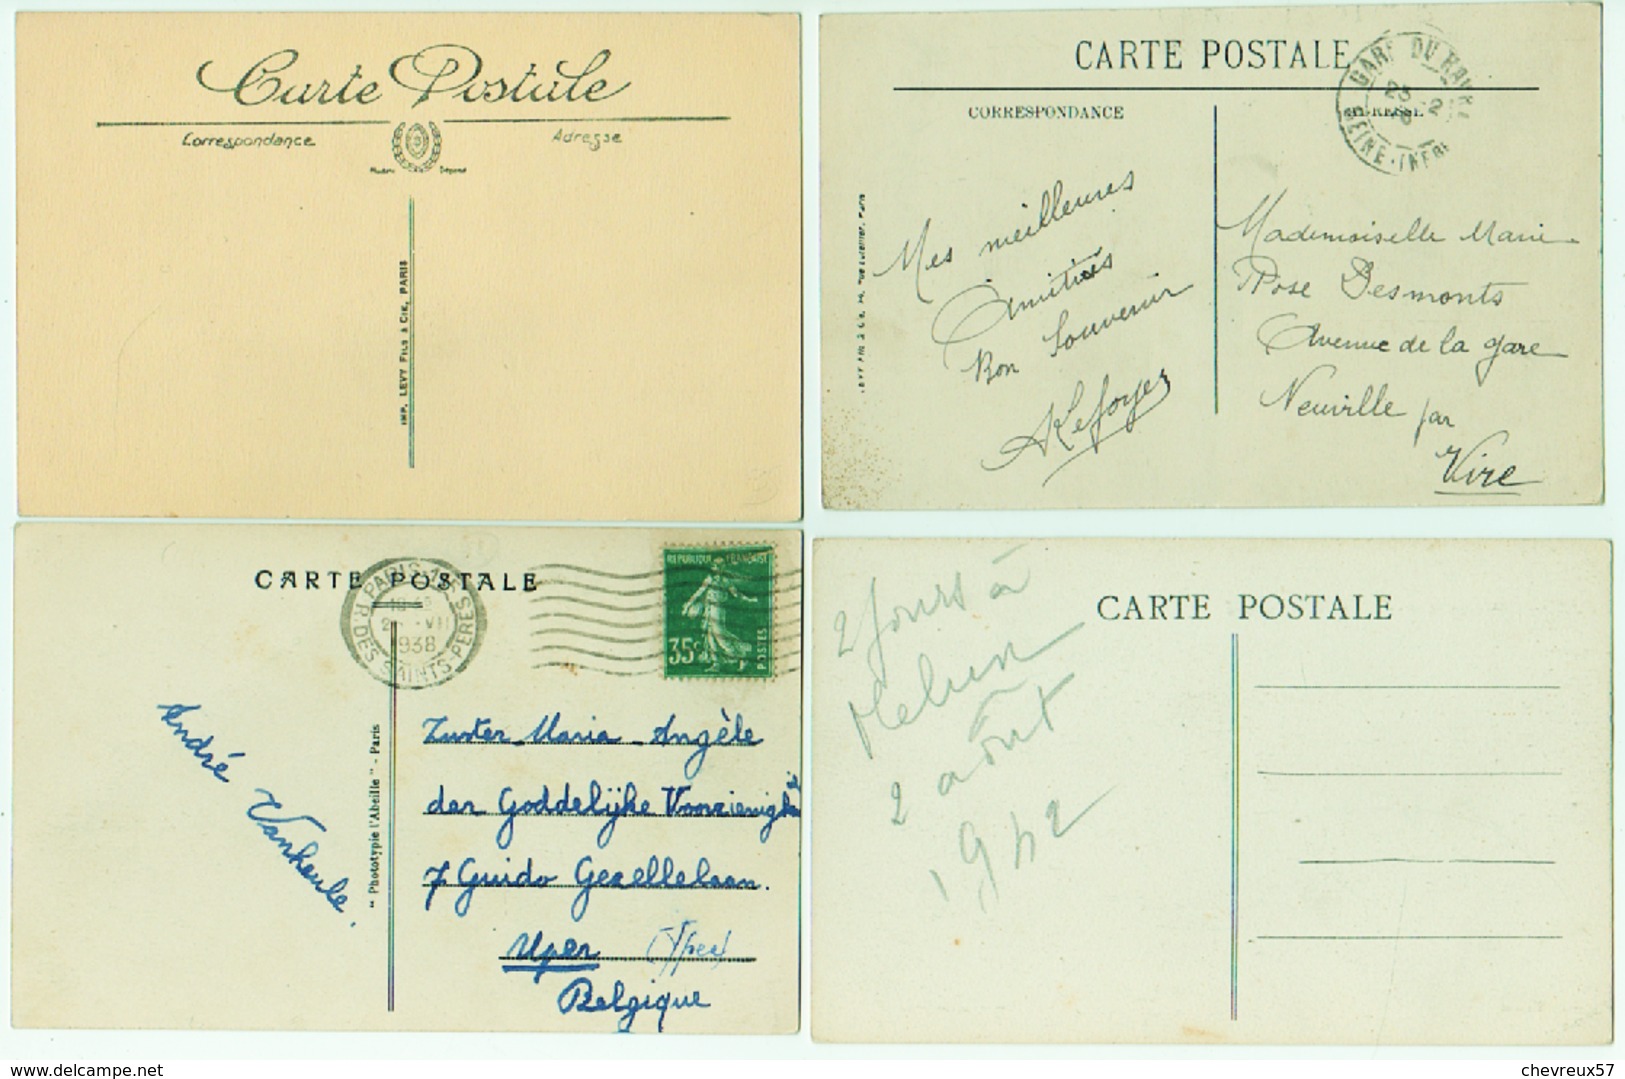 Carte Postale
Correspondance
Adresse
Modèle Déposé
IMP. LEVY FILS & Cie, PARIS
CARTE POSTALE
CORRESPONDANCE
GARE DU HAVRE
SEINE-INFRE
Mes meilleures
Amitiés
Bon Souvenir
Mademoiselle Marie
Rose Desmonts
Avenue de la gare
Neuville par
Vire
CARTE POSTALE
R. DES SAINTS-PERES
1938
REPUBLIQUE FRANÇAISE
35c
POSTES
André Vanheule.
" Phototypie l'Abeille " - Paris
Zuster Maria-Angèle
der Goddelijke Voorzienigh
7 Guido Gezellelaan.
Yper (Ypres)
Belgique
CARTE POSTALE
2 Jours à
Melun
2 août
1942
chevreux57